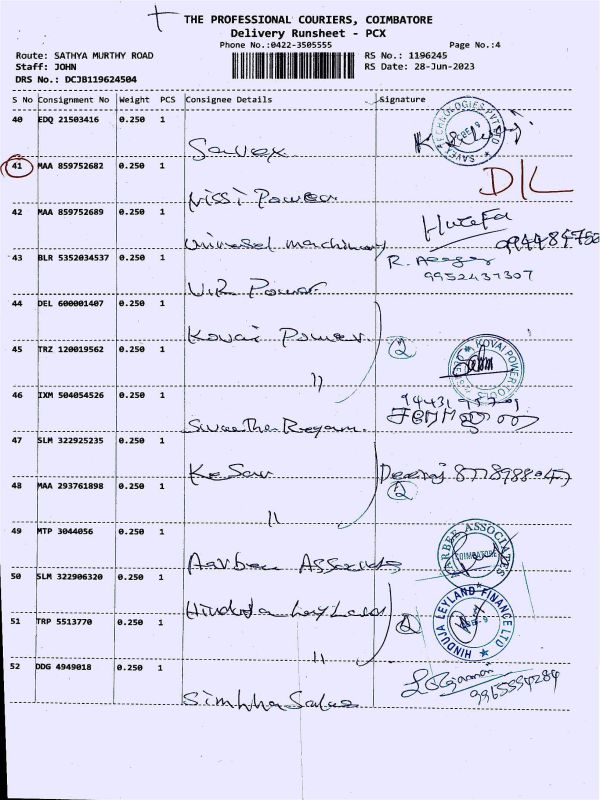 THE PROFESSIONAL COURIERS, COIMBATORE
Delivery Runsheet - PCX
Phone No.:0422-3505555 Page No.:4
Route: SATHYA MURTHY ROAD RS No.: 1196245
Staff: JOHN RS Date: 28-Jun-2023
DRS No.: DCJB119624504
S No Consignment No Weight PCS Consignee Details Signature
40 EDQ 21503416 0.250 1
Savex
SAVEX TECHNOLOGIES PVT LTD
41 MAA 859752682 0.250 1
Nissi Power
D/L
42 MAA 859752689 0.250 1
Universal machinery
Huzefa
43 BLR 5352034537 0.250 1
V.R Power
R.
9952437307
44 DEL 600001407 0.250 1
Kovai Power
45 TRZ 120019562 0.250 1
〃
2
KOVAI POWER TOOLS
46 IXM 504054526 0.250 1
Swetha
47 SLM 322925235 0.250 1
Kesav
48 MAA 293761898 0.250 1
〃
2
49 MTP 3044056 0.250 1
Aarbee Associates
AARBEE ASSOCIATES
COIMBATORE
50 SLM 322906320 0.250 1
Hinduja Leyland
51 TRP 5513770 0.250 1
〃
2
HINDUJA LEYLAND FINANCE LTD
52 DDG 4949018 0.250 1
Simhha Sales
9965554284